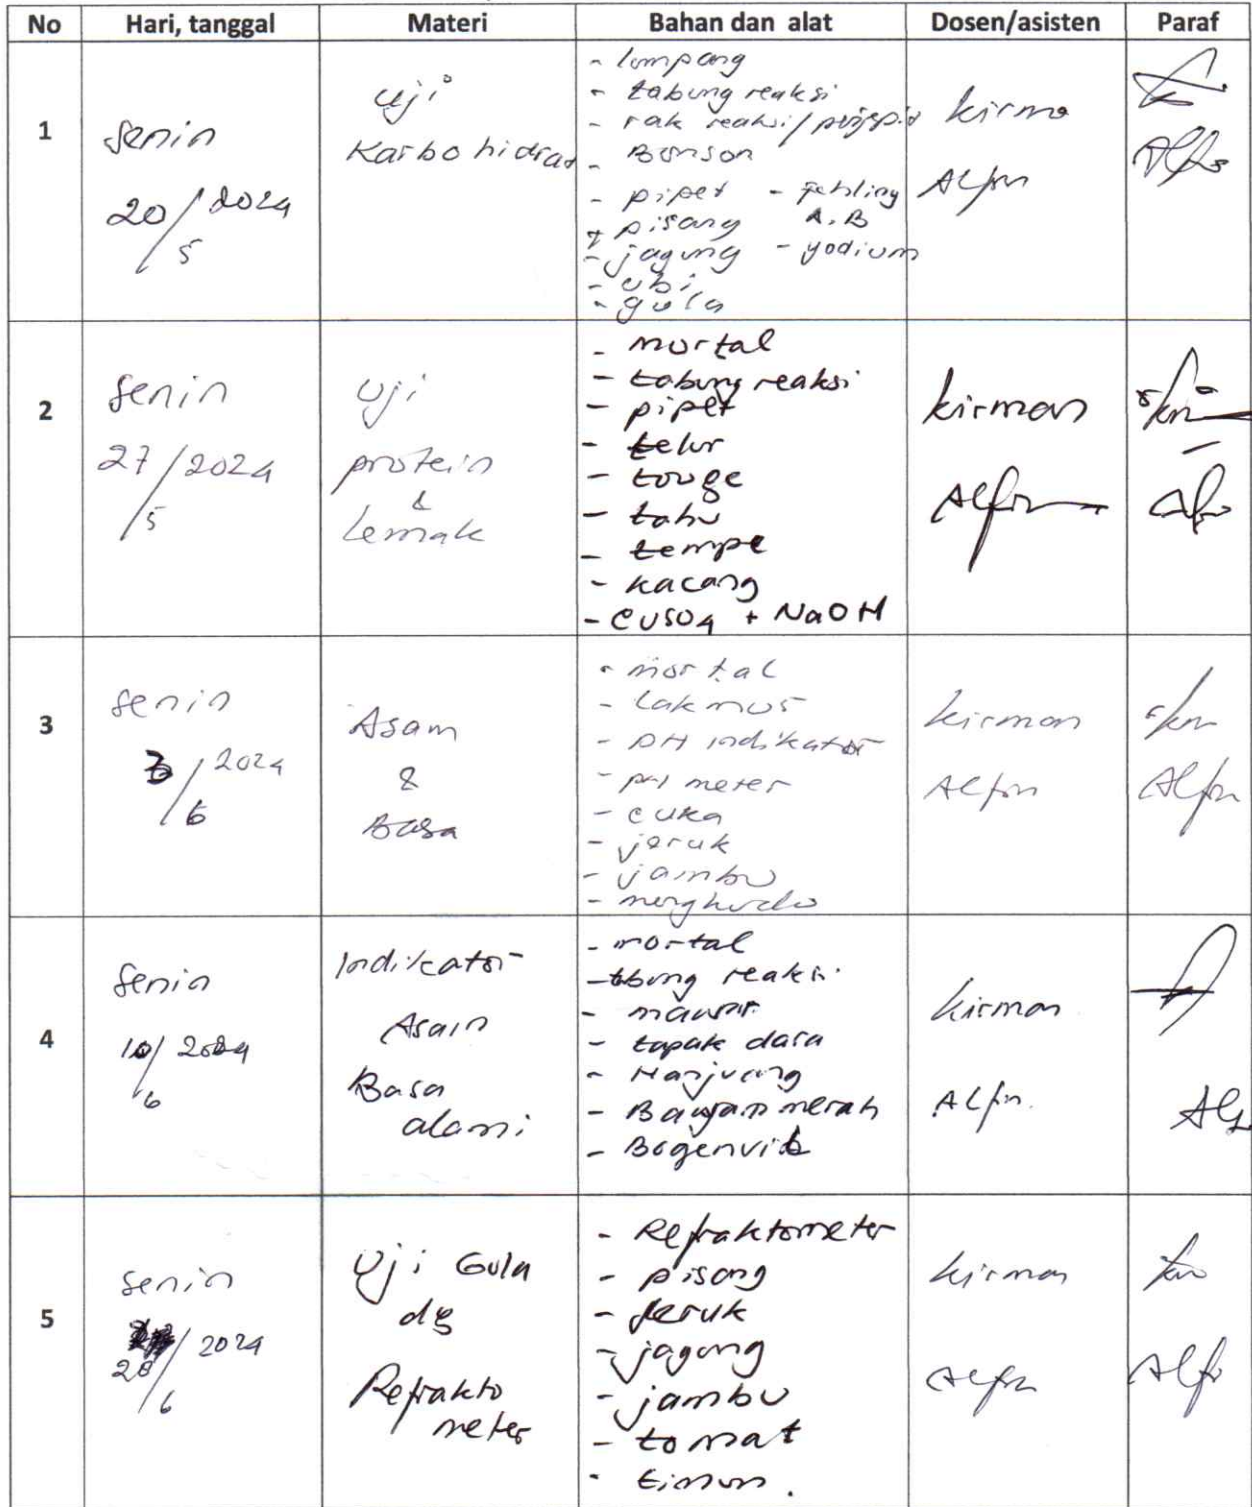 No Hari, tanggal Materi Bahan dan alat Dosen/asisten Paraf
1
Senin
20/2024
5
Uji
Karbohidrat
- lompang
- tabung reaksi
- rak reaksi/
- Bonson
- pipet - Fehling
A.B
+ pisang
- jagung - yodium
- ubi
- gula
kirma
Alfin
2
Senin
27/2024
5
Uji
protein
&
Lemak
- mortal
- tabung reaksi
- pipet
- telur
- touge
- tahu
- tempe
- kacang
- CUSO4 + NaOH
kirman
Alfin
3
Senin
3/2024
6
Asam
&
Basa
- mortal
- Lakmus
- PH indikator
- pH meter
- cuka
- jeruk
- jambu
kirman
Alfin
4
Senin
10/2024
6
Indikator
Asam
Basa
alami
- mortal
- tabung reaksi
- mawar
- tapak dara
- Hanjuang
- Bayam merah
- Bogenvil
kirman
Alfin.
5
Senin
28/2024
6
Uji Gula
dg
Refrakto
meter
- Refraktometer
- pisang
- Jeruk
- jagung
- jambu
- tomat
- timun.
kirman
Alfin